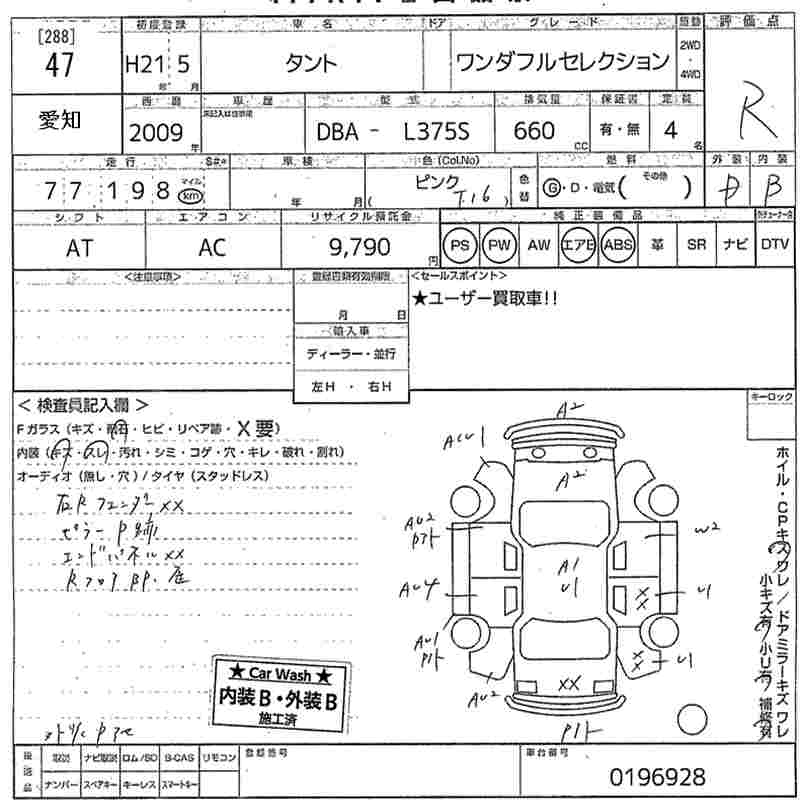 [288]
47
初度登録
車名
ドア
グレード
駆動
評価点
H21 5
年 月
タント
ワンダフルセレクション
2WD
・
4WD
R
愛知
西暦
車歴
型式
排気量
保証書
定員
2009
年
DBA - L375S
660
CC
有・無
4
名
走行
車検
色(Col.No)
燃料
外装
内装
77198
マイル
km
年 月
ピンク
( T16 )
色替
G・D・電気( その他 )
D
B
シフト
エアコン
リサイクル預託金
純正装備品
AT
AC
9,790
円
PS
PW
AW
エアB
ABS
革
SR
ナビ
DTV
<注意事項>
登録書類有効期限
<セールスポイント>
月 日
★ユーザー買取車!!
輸入車
ディーラー・並行
左H ・ 右H
<検査員記入欄>
キーロック
Fガラス(キズ・雨・ヒビ・リペア跡・X要)
内装(キズ・スレ・汚れ・シミ・コゲ・穴・キレ・破れ・割れ)
オーディオ(無し・穴)/タイヤ(スタッドレス)
右Rフェンダーxx
ピラーP跡
エンドパネルxx
A2
AU1
A2
AU2
Pアト
W2
A1
U1
AU4
xx
U1
AU1
Pアト
xx
U1
AU2
xx
Pアト
ホイル・CPキズワレ/ドアミラーキズワレ
小キズ有 小U有 補修有
★ Car Wash ★
内装B・外装B
施工済
後送品
取説
ナビ取説
ロム/SD
B-CAS
リモコン
登録番号
車台番号
ナンバー
スペアキー
キーレス
スマートキー
0196928